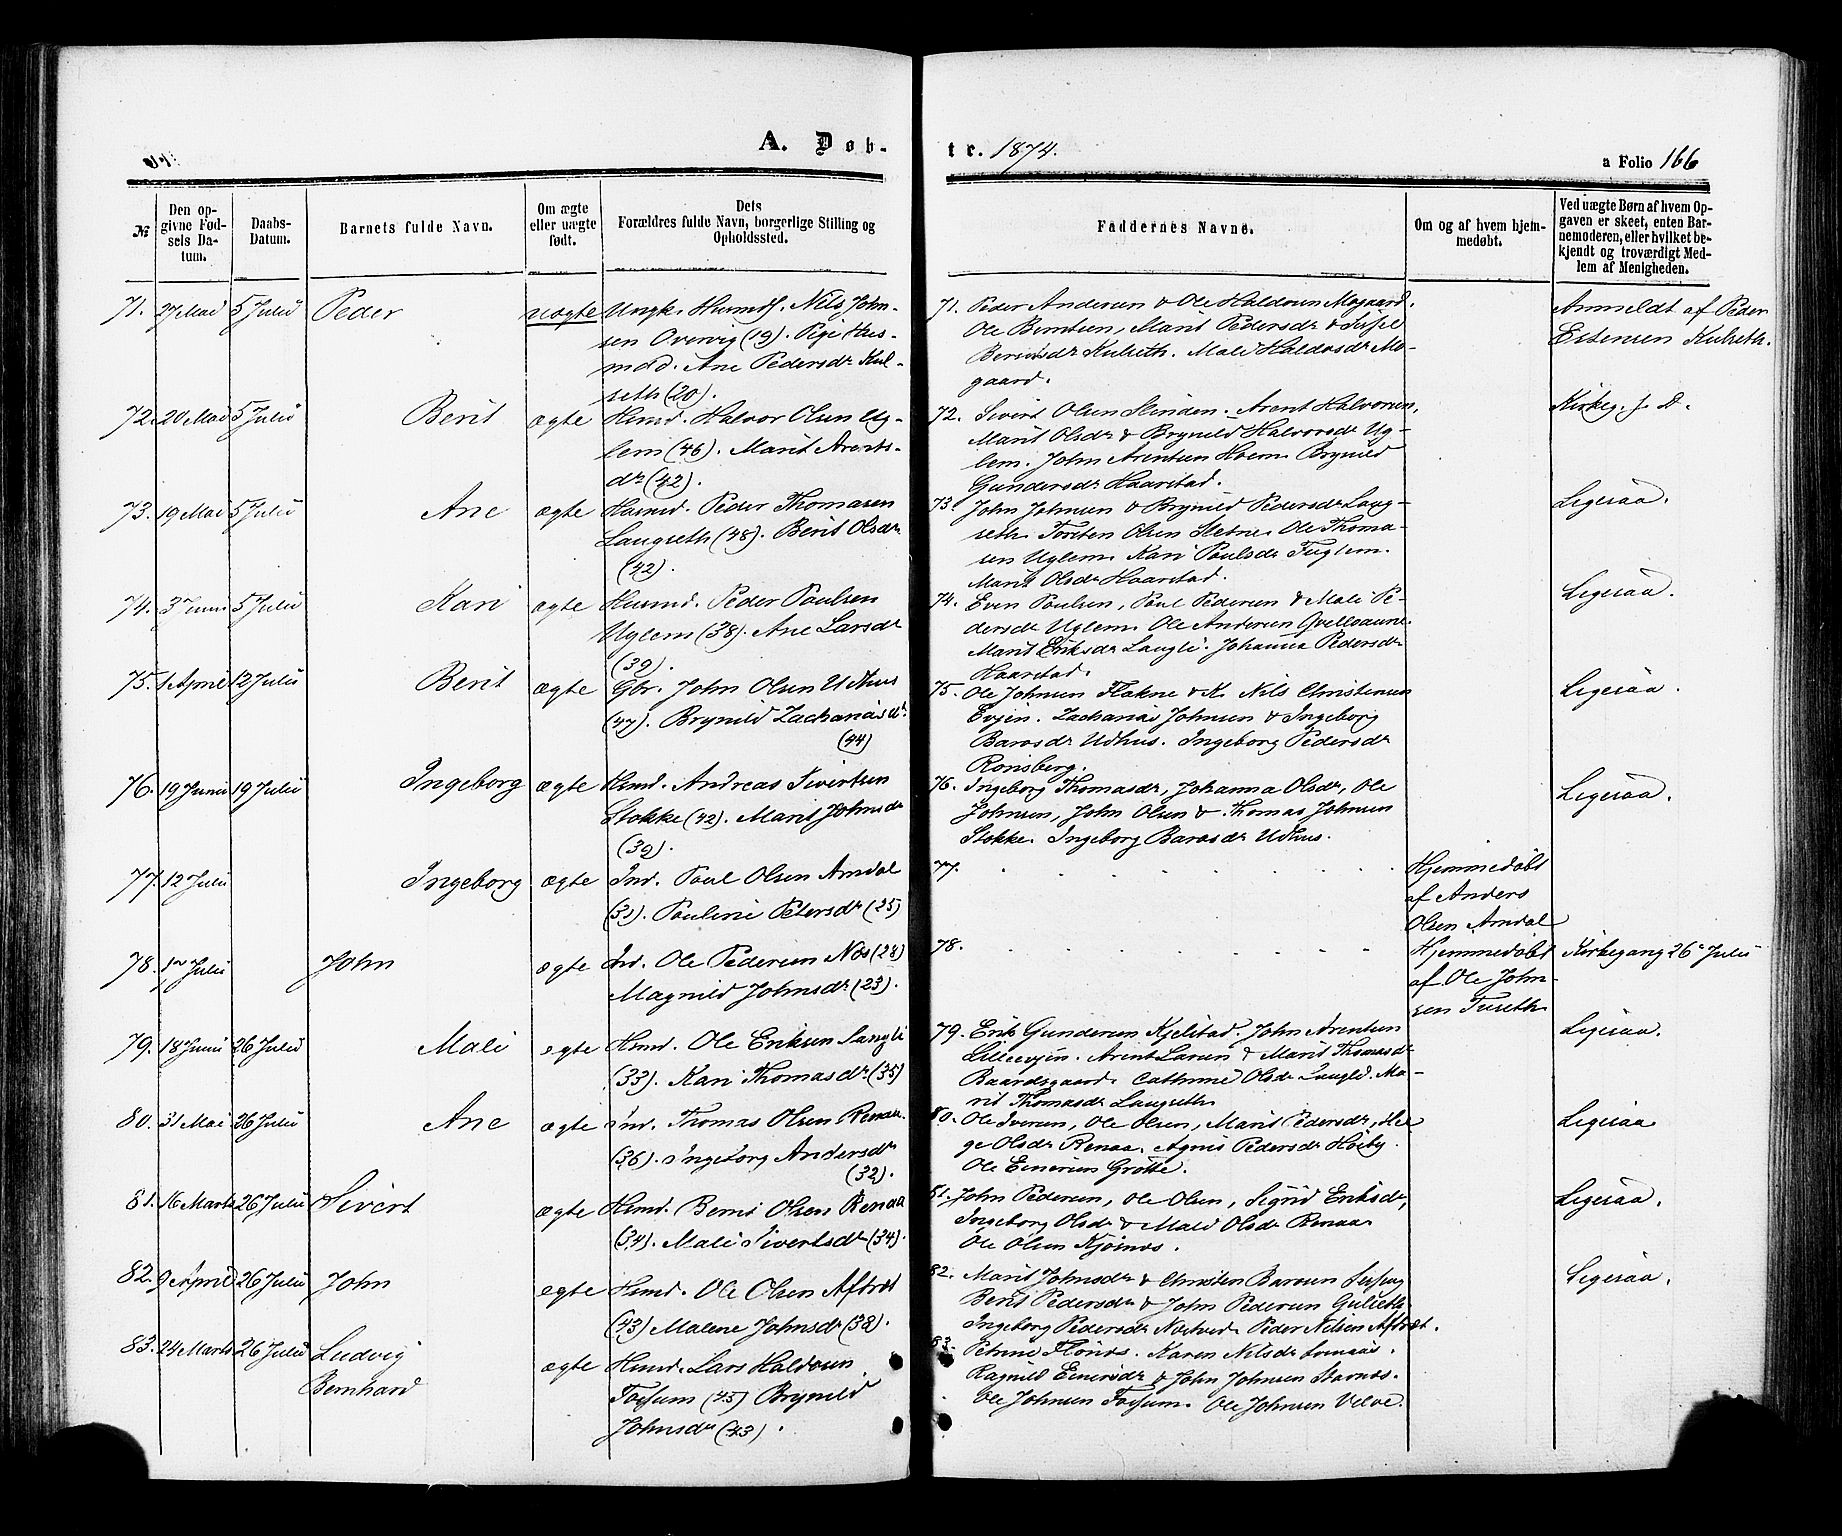 A. Døb-
tr. 1874.
a Folio 166
№
Den op-
givne Fød-
sels Da-
tum.
Daabs-
Datum.
Barnets fulde Navn.
Om ægte
eller uægte
født.
Dets
Forældres fulde Navn, borgerlige Stilling og
Opholdssted.
Faddernes Navne.
Om og af hvem hjem-
medøbt.
Ved uægte Børn af hvem Op-
gaven er skeet, enten Bar-
nemoderen, eller hvilket be-
kjendt og troværdigt Med-
lem af Menigheden.
71. 27 Mai 5 Julii Peder uægte Ungk. Nils John-
sen Overvig (19). Pige Hus-
mdd. Ane Pedersdr Kul-
seth (20).
71. Peder Andersen & Ole Haldosen Mogaard.
Ole Berntsen, Marit Pedersdr & Sissel
Kulseth. Mali Haldosdr Mo-
gaard.
Anmeldt af Peder
Estensen Kulseth.
72. 20 Mai 5 Julii Berit ægte Hsmd. Halvor Olsen Ug-
lem (46). Marit Arents-
dr (42).
72. Sivert Olsen Slinden. Arent Halvorsen,
Marit Olsdr & Brynild Halvorsdr Ug-
lem. John Arentsen Hoem. Brynild
Gundersdr Haarstad.
Kirkeg. s. D.
73. 19 Mai 5 Julii Ane ægte Husmd. Peder Thomasen
Langseth (48). Berit Olsdr
(42).
73. John Johnsen & Brynild Pedersdr Lang-
seth. Torsten Olsen Sletne. Ole Thoma-
sen Uglem. Kari Paulsdr Fuglem.
Marit Olsdr Haarstad.
Ligesaa.
74. 3 Juni 5 Julii Kari ægte Husmd. Peder Paulsen
Uglem (38). Ane Larsdr
(39).
74. Even Paulsen, Paul Pedersen & Mali Pe-
dersdr Uglem. Ole Andersen Qvelloaune.
Marit Eriksdr Langli. Johanna Pedersdr
Haarstad.
Ligesaa.
75. 1 April 12 Julii Berit ægte Gbr. John Olsen Udhus
(47). Brynild Zachariasdr.
(44)
75. Ole Johnsen Flakne & K. Nils Christensen
Evjen. Zacharias Johnsen & Ingeborg
Barosdr Udhus. Ingeborg Pedersdr
Ronsberg.
Ligesaa.
76. 19 Junii 19 Julii Ingeborg ægte Hsmd. Andreas Sivertsen
Stokke (42). Marit Johnsdr
(39).
76. Ingeborg Thomasdr, Johanna Olsdr, Ole
Johnsen, John Olsen & Thomas Johnsen
Stokke. Ingeborg Baroosdr Udhus.
Ligesaa.
77. 12 Julii Ingeborg ægte Ind. Paul Olsen Amdal
(31). Pauline Petersdr (25)
77.
Hjemmedøbt
af Anders
Olsen Amdal
78. 1ste Julii John ægte Ind. Ole Pedersen Næs (28)
Magnild Johnsdr (23).
78.
Hjemmedøbt
af Ole John-
sen Tuseth.
Kirkegang 26de Julii
79. 18 Junii 26 Julii Mali ægte Hsmd. Ole Eriksen Langli
(33). Kari Thomasdr. (35)
79. Erik Gundersen Kjelstad. John Arentsen
Lilleevjen. Arent Larsen & Marit Thomasdr
Baardsgaard. Cathrine Olsdr Langli. Ma-
rit Thomasdr Langseth
Ligesaa.
80. 31 Mai 26 Julii Ane ægte Ind. Thomas Olsen Renaa.
(36). Ingeborg Andersdr
(32).
80. Ole Iversen, Ole Olsen, Marit Pedersdr, Hel-
ge Olsdr Renaa. Agnis Pedersdr Høiby
Ole Einersen Grøtte.
Ligesaa
81. 16 Marts 26 Julii Sivert ægte Hsmd. Bernt Olsen Renaa
(34). Mali Sivertsdr (34).
81. John Pedersen, Ole Olsen, Sigrid Eriksdr,
Ingeborg Olsdr & Mali Olsdr Renaa
Ole Olsen Kjøsnæs.
Ligesaa.
82. 9 April 26 Julii John ægte Hsmd. Ole Olsen Aftret
(43) Malene Johnsdr (38).
82. Marit Johnsdr & Christen Barosen
Berit Pedersdr & John Pedersen Gulseth.
Ingeborg Pedersdr Næstved. Peder Nilsen Aftræt.
Ligesaa.
83. 24 Marts 26 Julii Ludvig
Bernhard
ægte Hsmd. Lars Haldosen
Fossum (45) Brynild
Johnsdr (43).
83. Petrine Flønæs. Karen Nilsdr
Ragnild Einersdr & John Johnsen Stamnæs.
Ole Johnsen Fossum. Ole Johnsen Velve.